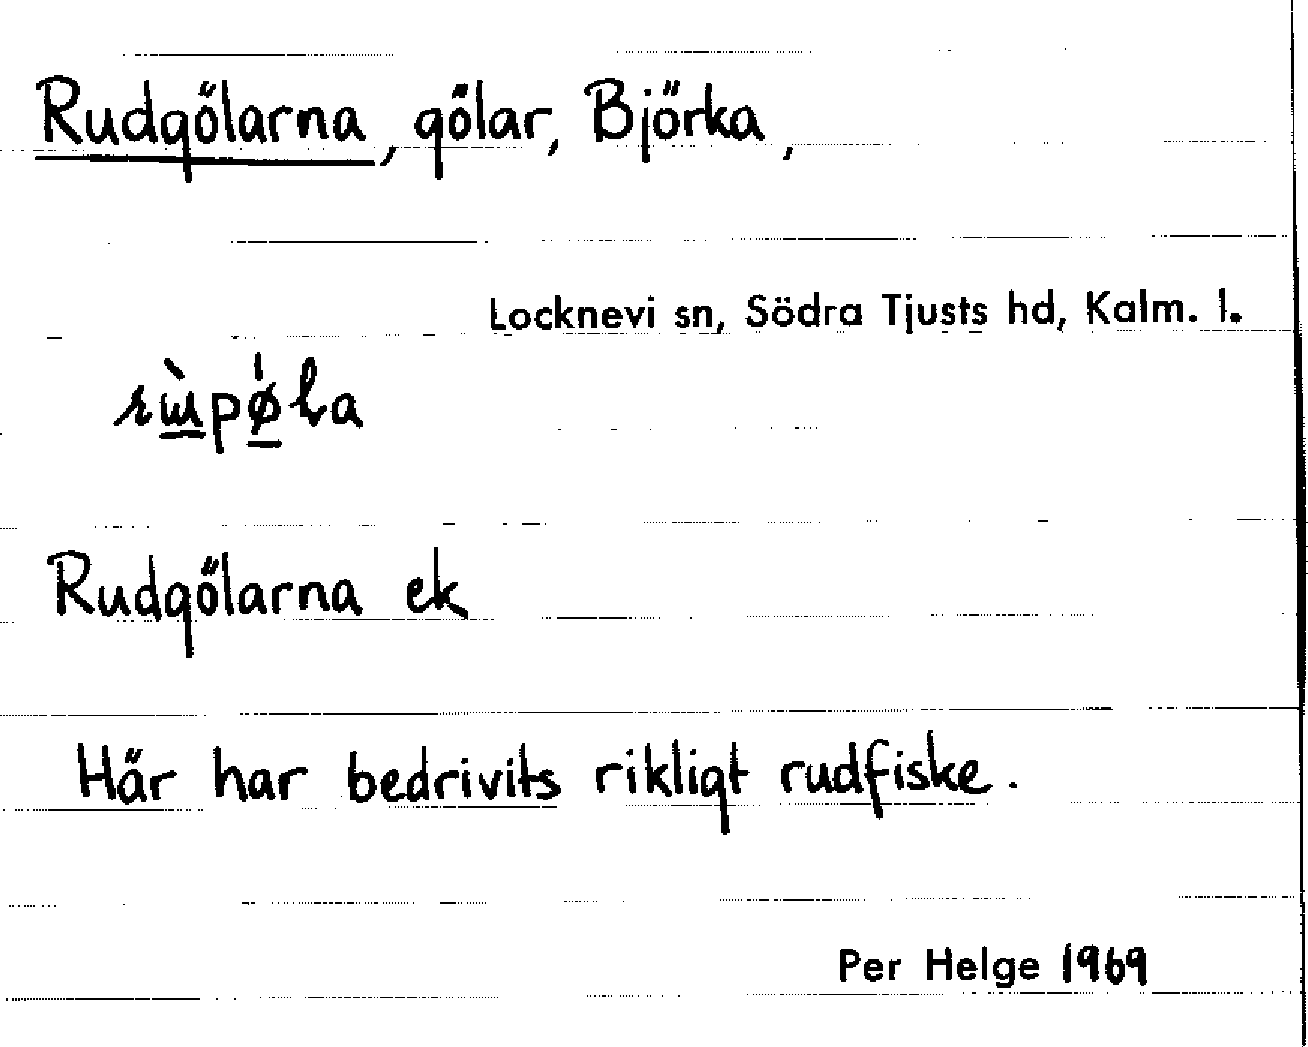 Rudgölarna, gölar, Björka,
Locknevi sn, Södra Tjusts hd, Kalm. l.
Rudgölarna ek
Här har bedrivits rikligt rudfiske.
Per Helge 1969